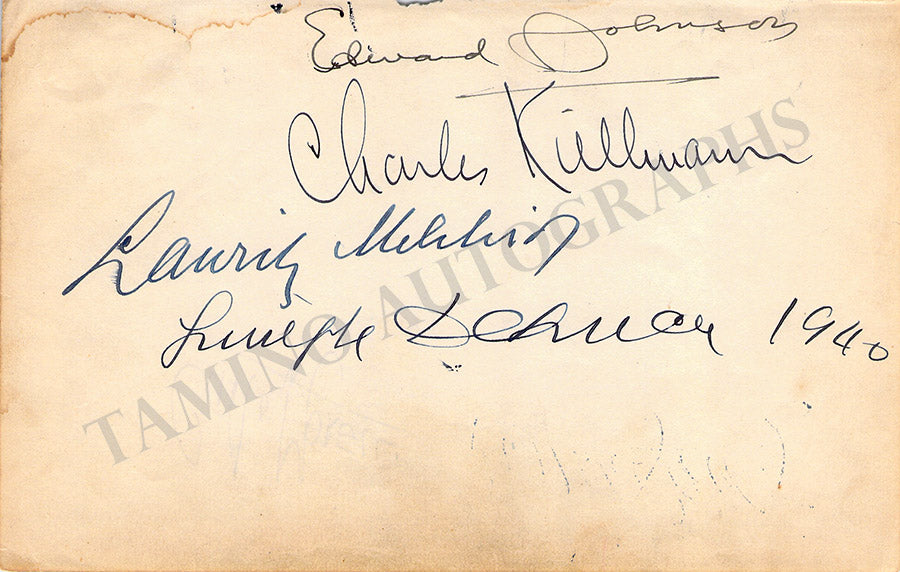 Edward Johnson
Charles Kullmann
Lauritz Melchior
1940
TAMINO AUTOGRAPHS